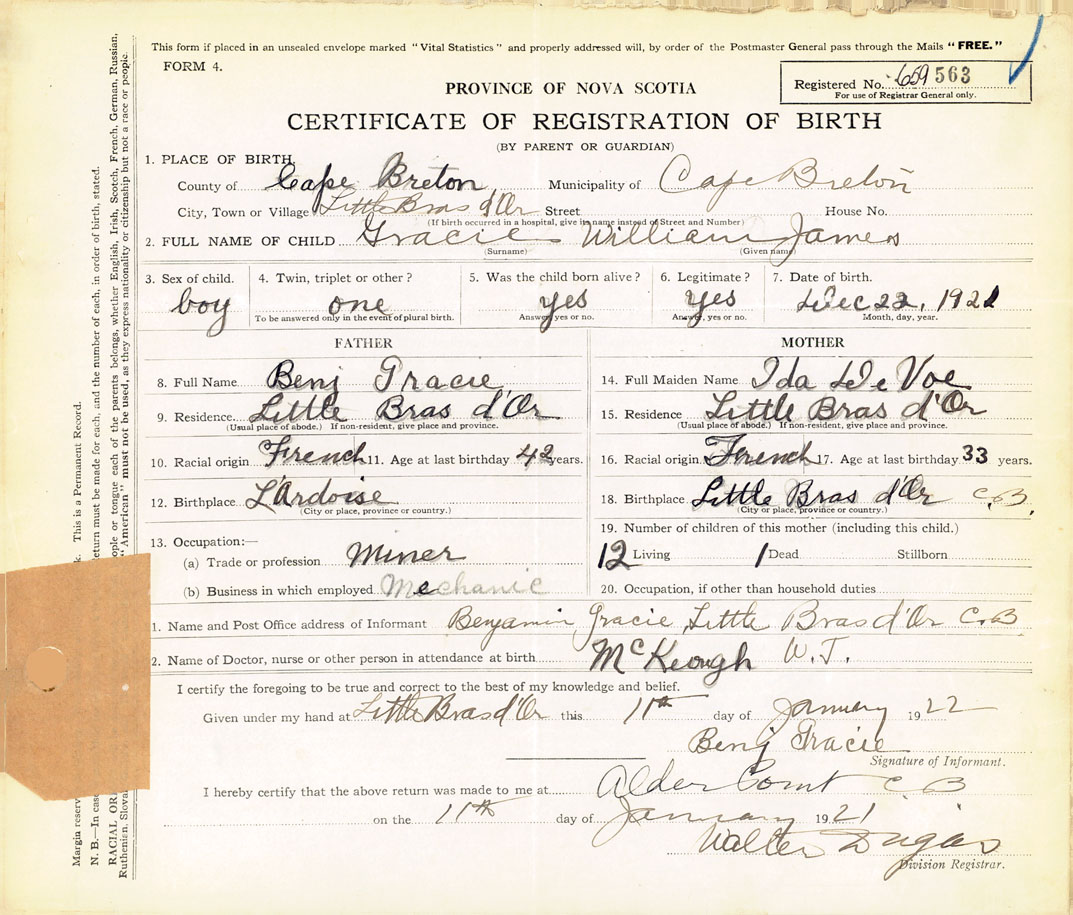 This form if placed in an unsealed envelope marked "Vital Statistics" and properly addressed will, by order of the Postmaster General pass through the Mails "FREE."
FORM 4.
Registered No. 659 563
For use of Registrar General only.
PROVINCE OF NOVA SCOTIA
CERTIFICATE OF REGISTRATION OF BIRTH
(BY PARENT OR GUARDIAN)
1. PLACE OF BIRTH,
County of Cape Breton Municipality of Cape Breton
City, Town or Village Little Bras d'Or Street House No.
(If birth occurred in a hospital, give its name instead of Street and Number)
2. FULL NAME OF CHILD Gracie William James
(Surname) (Given name)
3. Sex of child. 4. Twin, triplet or other? 5. Was the child born alive? 6. Legitimate? 7. Date of birth.
boy one yes yes Dec 22, 1921
To be answered only in the event of plural birth. Answer yes or no. Answer, yes or no. Month, day, year.
FATHER
8. Full Name Benj Gracie
9. Residence Little Bras d'Or
(Usual place of abode.) If non-resident, give place and province.
10. Racial origin French 11. Age at last birthday 42 years.
12. Birthplace L'Ardoise
(City or place, province or country.)
13. Occupation:—
(a) Trade or profession Miner
(b) Business in which employed Mechanic
MOTHER
14. Full Maiden Name Ida De Voe
15. Residence Little Bras d'Or
(Usual place of abode.) If non-resident, give place and province.
16. Racial origin French 17. Age at last birthday 33 years.
18. Birthplace Little Bras d'Or C.B.
(City or place, province or country.)
19. Number of children of this mother (including this child.)
12 Living 1 Dead Stillborn
20. Occupation, if other than household duties
1. Name and Post Office address of Informant Benjamin Gracie, Little Bras d'Or C.B
2. Name of Doctor, nurse or other person in attendance at birth McKeough W.J.
I certify the foregoing to be true and correct to the best of my knowledge and belief.
Given under my hand at Little Bras d'Or this 11th day of January 1922
Benj Gracie
Signature of Informant.
I hereby certify that the above return was made to me at Alder Point C B
on the 11th day of January 1921
Walter Dugas
Division Registrar.
Margin reserve k. This is a Permanent Record.
N. B.—In case return must be made for each, and the number of each, in order of birth, stated.
RACIAL OR people or tongue each of the parents belongs, whether English, Irish, Scotch, French, German, Russian,
Ruthenian, Slova "American" must not be used, as they express nationality or citizenship but not a race or people.